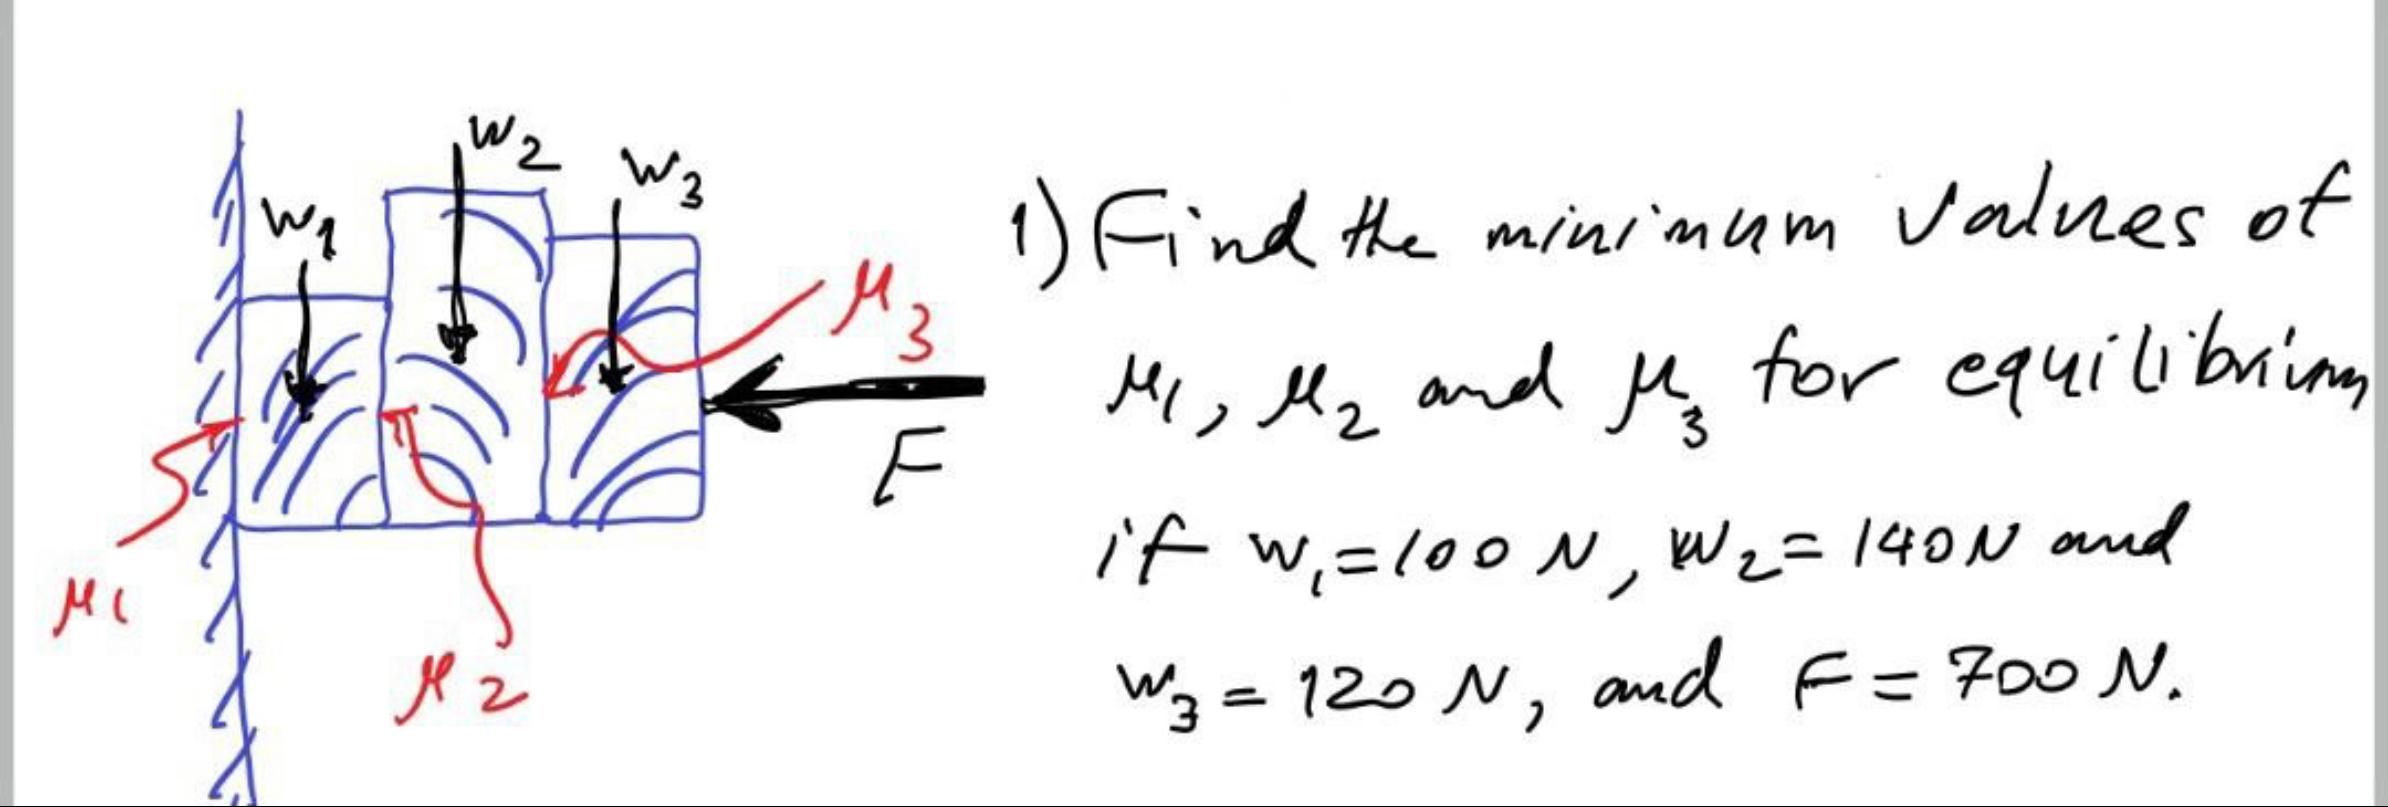 W2
W3
W1
μ3
F
μ1
μ2
1) Find the minimum values of
μ1, μ2 and μ3 for equilibrium
if W1=100 N, W2=140N and
W3=120 N, and F=700 N.